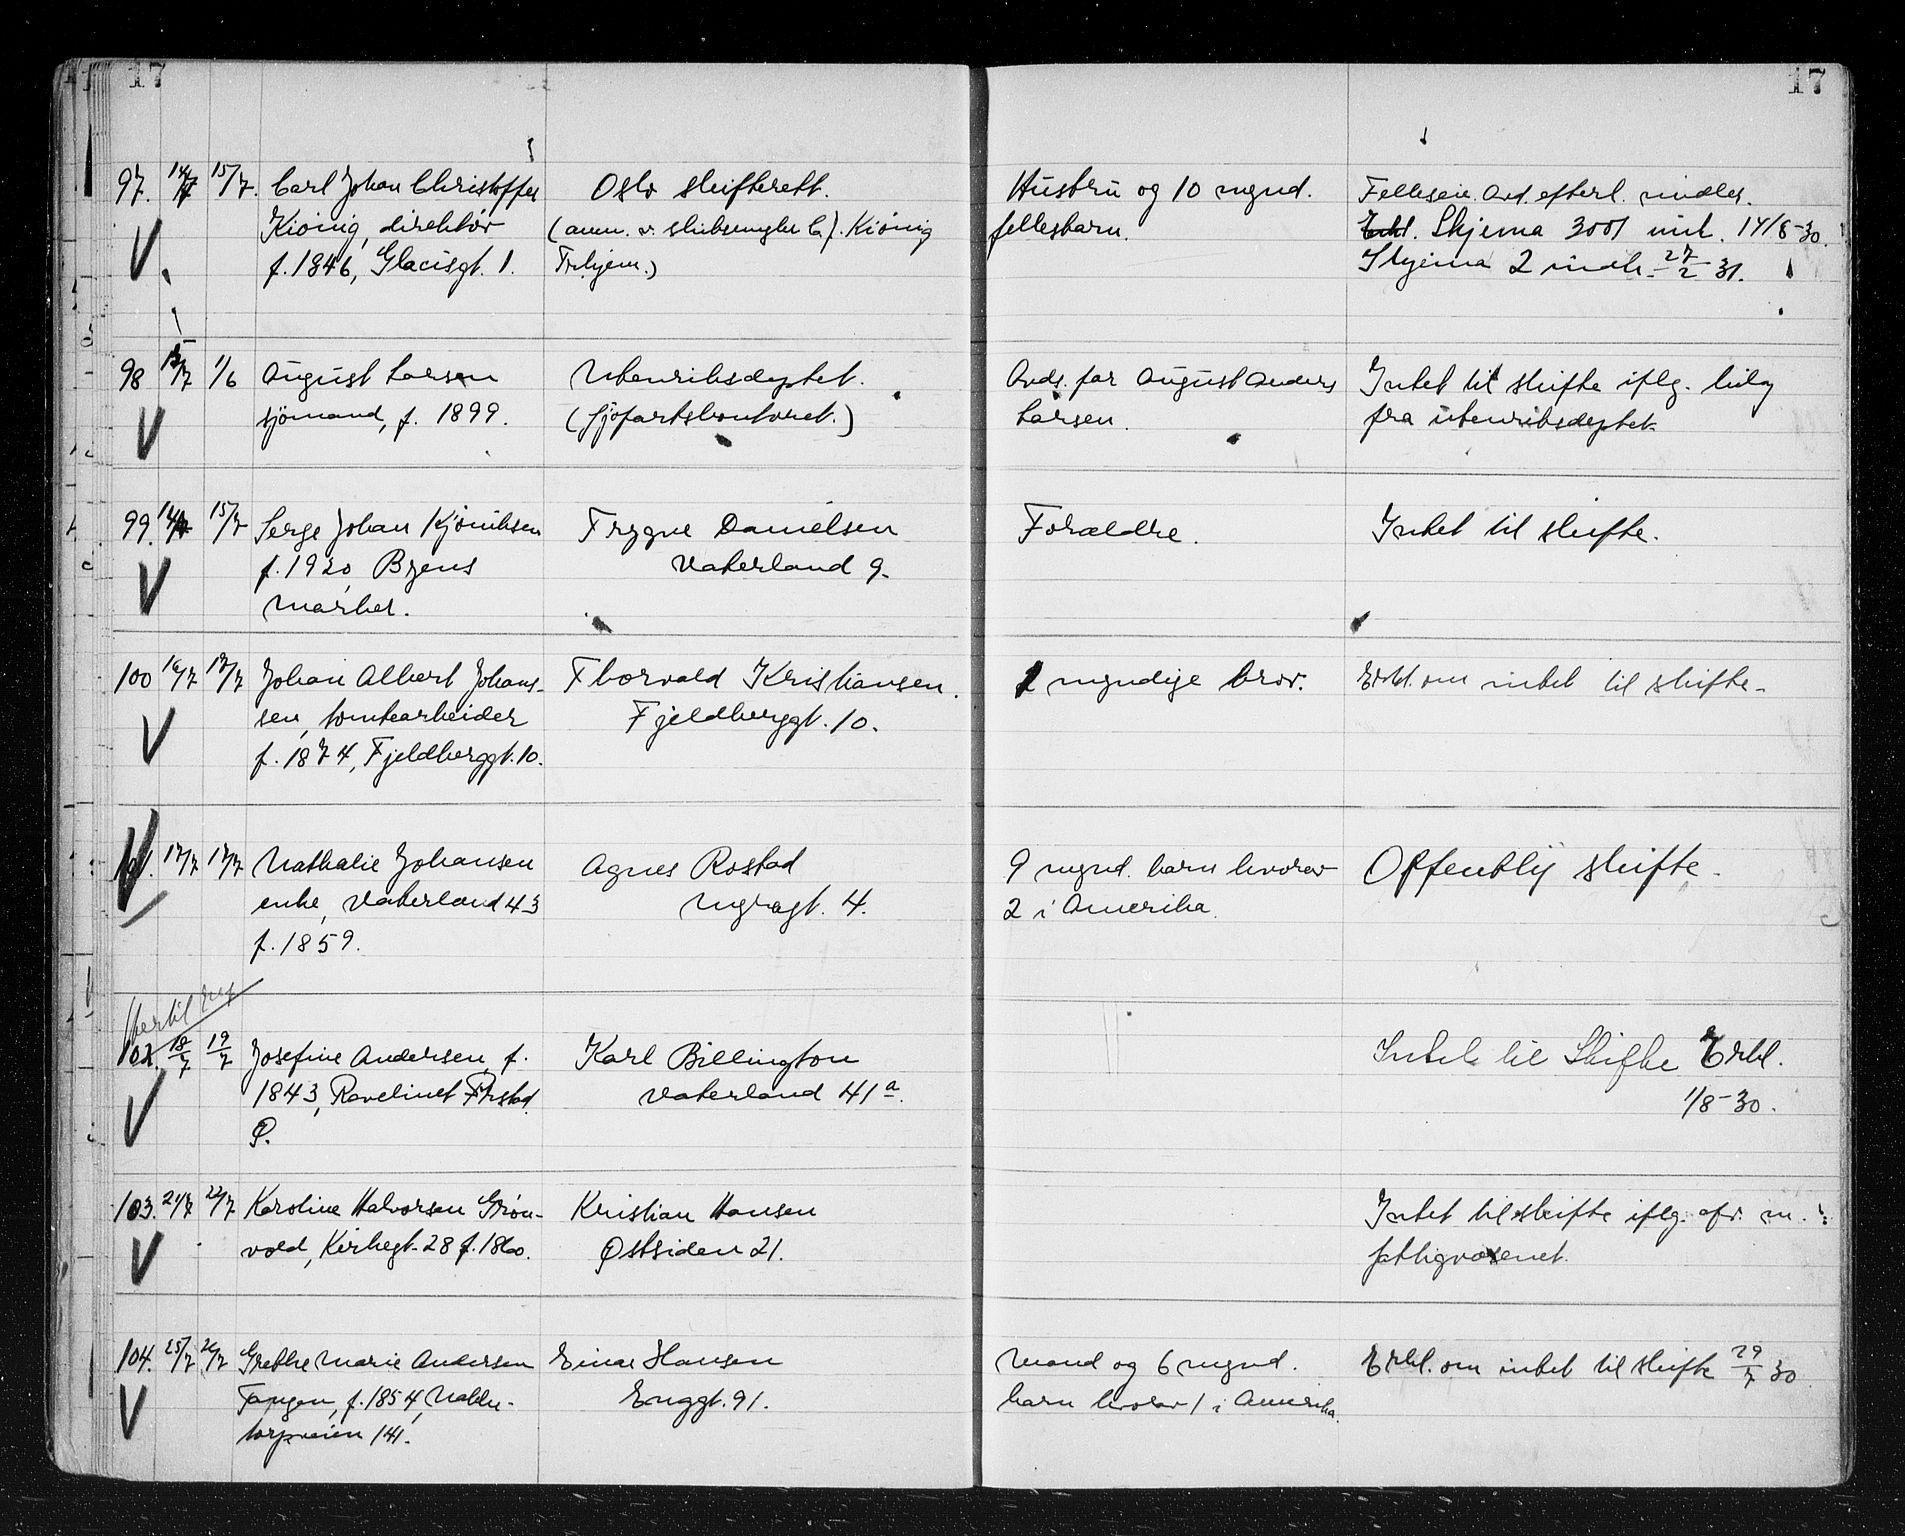 17
17
97. 14/7 15/7. Carl Johan Christoffer
Kiønig, direktör
f. 1846, Glacisgt. 1.
Oslo skifterett.
(anm. v. skibsmegler C. J. Kiönig
Trhjem.)
Hustru og 10 mynd.
fellesbarn.
Felleseie. Avd. efterl.
Erkl. Skjema 3001 mt. 14/8-30.
Skjema 2 indk. 27/2 31.
98 15/7 1/6 August Larsen
sjömand, f. 1899.
Utenriksdeptet.
(Sjöfartskontoret.)
Avds. far August Anders
Larsen.
Intet til skifte iflg.
fra utenriksdeptet.
99. 14/7 15/7 Serge Johan Kjöniksen
f. 1920, Byens
marker.
Trygve Danielsen
Vaterland 9.
Forældre.
Intet til skifte.
100 16/7 17/7 Johan Albert Johans-
sen, tomtearbeider
f. 1874, Fjeldberggt. 10.
Thorvald Kristiansen.
Fjeldberggt. 10.
2 myndige bror.
Erkl. om intet til skifte.
101. 17/7 17/7 Nathalie Johansen
enke, Vaterland 43
f. 1859.
Agnes Rostad
Nygt. 4.
9 mynd. barn hvorav
2 i Amerika.
Offentlig skifte.
102. 18/7 19/7 Josefine Andersen, f.
1843, Ravelinet Frstad
Ø.
Karl Billington
Vaterland 41 a.
Intet til Skifte Erkl.
1/8-30.
103. 21/7 22/7 Karoline Halvorsen Grøn-
vold, Kirkegt. 28 f. 1860.
Kristian Hansen
Østsiden 21.
Intet til skifte iflg. opr. m.
fattigvæsenet.
104. 25/7 26/7 Grethe Marie Andersen
Tangen, f. 1854, Nabbe-
torpveien 141.
Einar Hansen
Enggt. 91.
Mand og 6 mynd.
barn hvorav 1 i Amerika.
Erkl. om intet til skifte 29/7 30